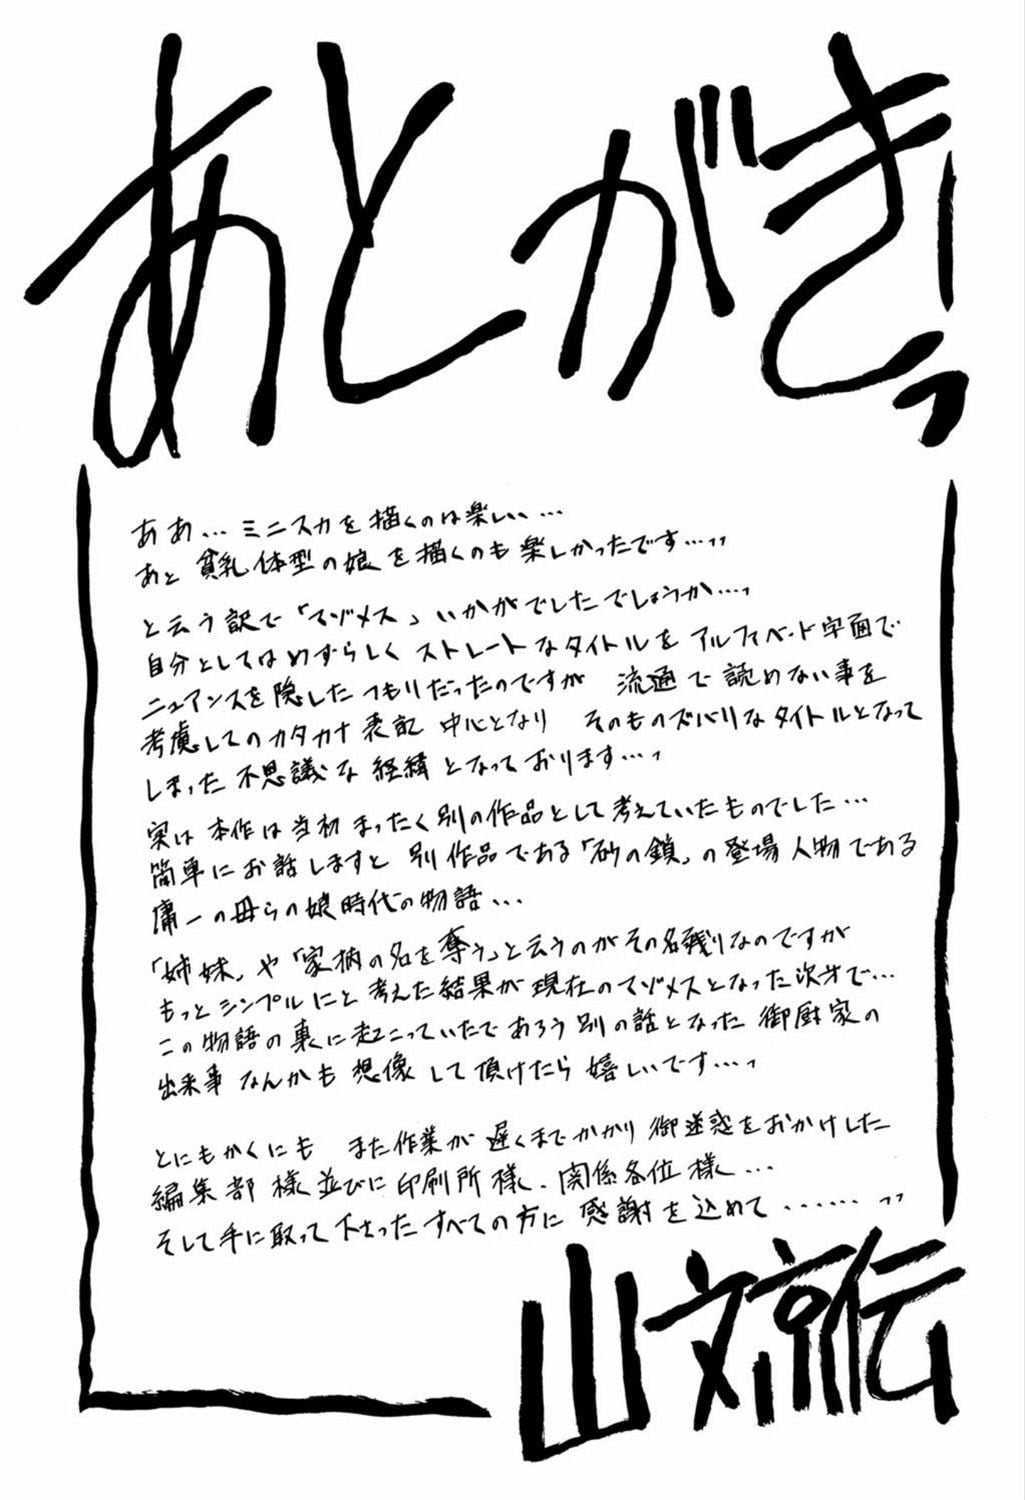 あとがきっ
ああ…ミニスカを描くのは楽しい…
あと 貧乳体型の娘を描くのも楽しかったです…っっ
と云う訳で「マゾメス」いかがでしたでしょうか…っ
自分としてはめずらしくストレートなタイトルを アルファベット字面で
ニュアンスを隠したつもりだったのですが 流通で読めない事を
考慮してのカタカナ表記 中心となり そのものズバリなタイトルとなって
しまった不思議な経緯となっております…っ
実は 本作は当初まったく別の作品として考えていたものでした…
簡単にお話しますと 別作品である「砂の鎖」の登場人物である
庸一の母らの娘時代の物語…
「姉妹」や「家柄の名を奪う」と云うのがその名残りなのですが
もっとシンプルにと考えた結果が現在のマゾメスとなった次才で…
この物語の裏に起こっていたであろう別の話となった 御厨家の
出来事なんかも 想像して頂けたら嬉しいです…っ
とにもかくにも また作業が遅くまでかかり御迷惑をおかけした
編集部様並びに印刷所様、関係各位様…
そして手に取って下さったすべての方に感謝を込めて……っっ
山文京伝